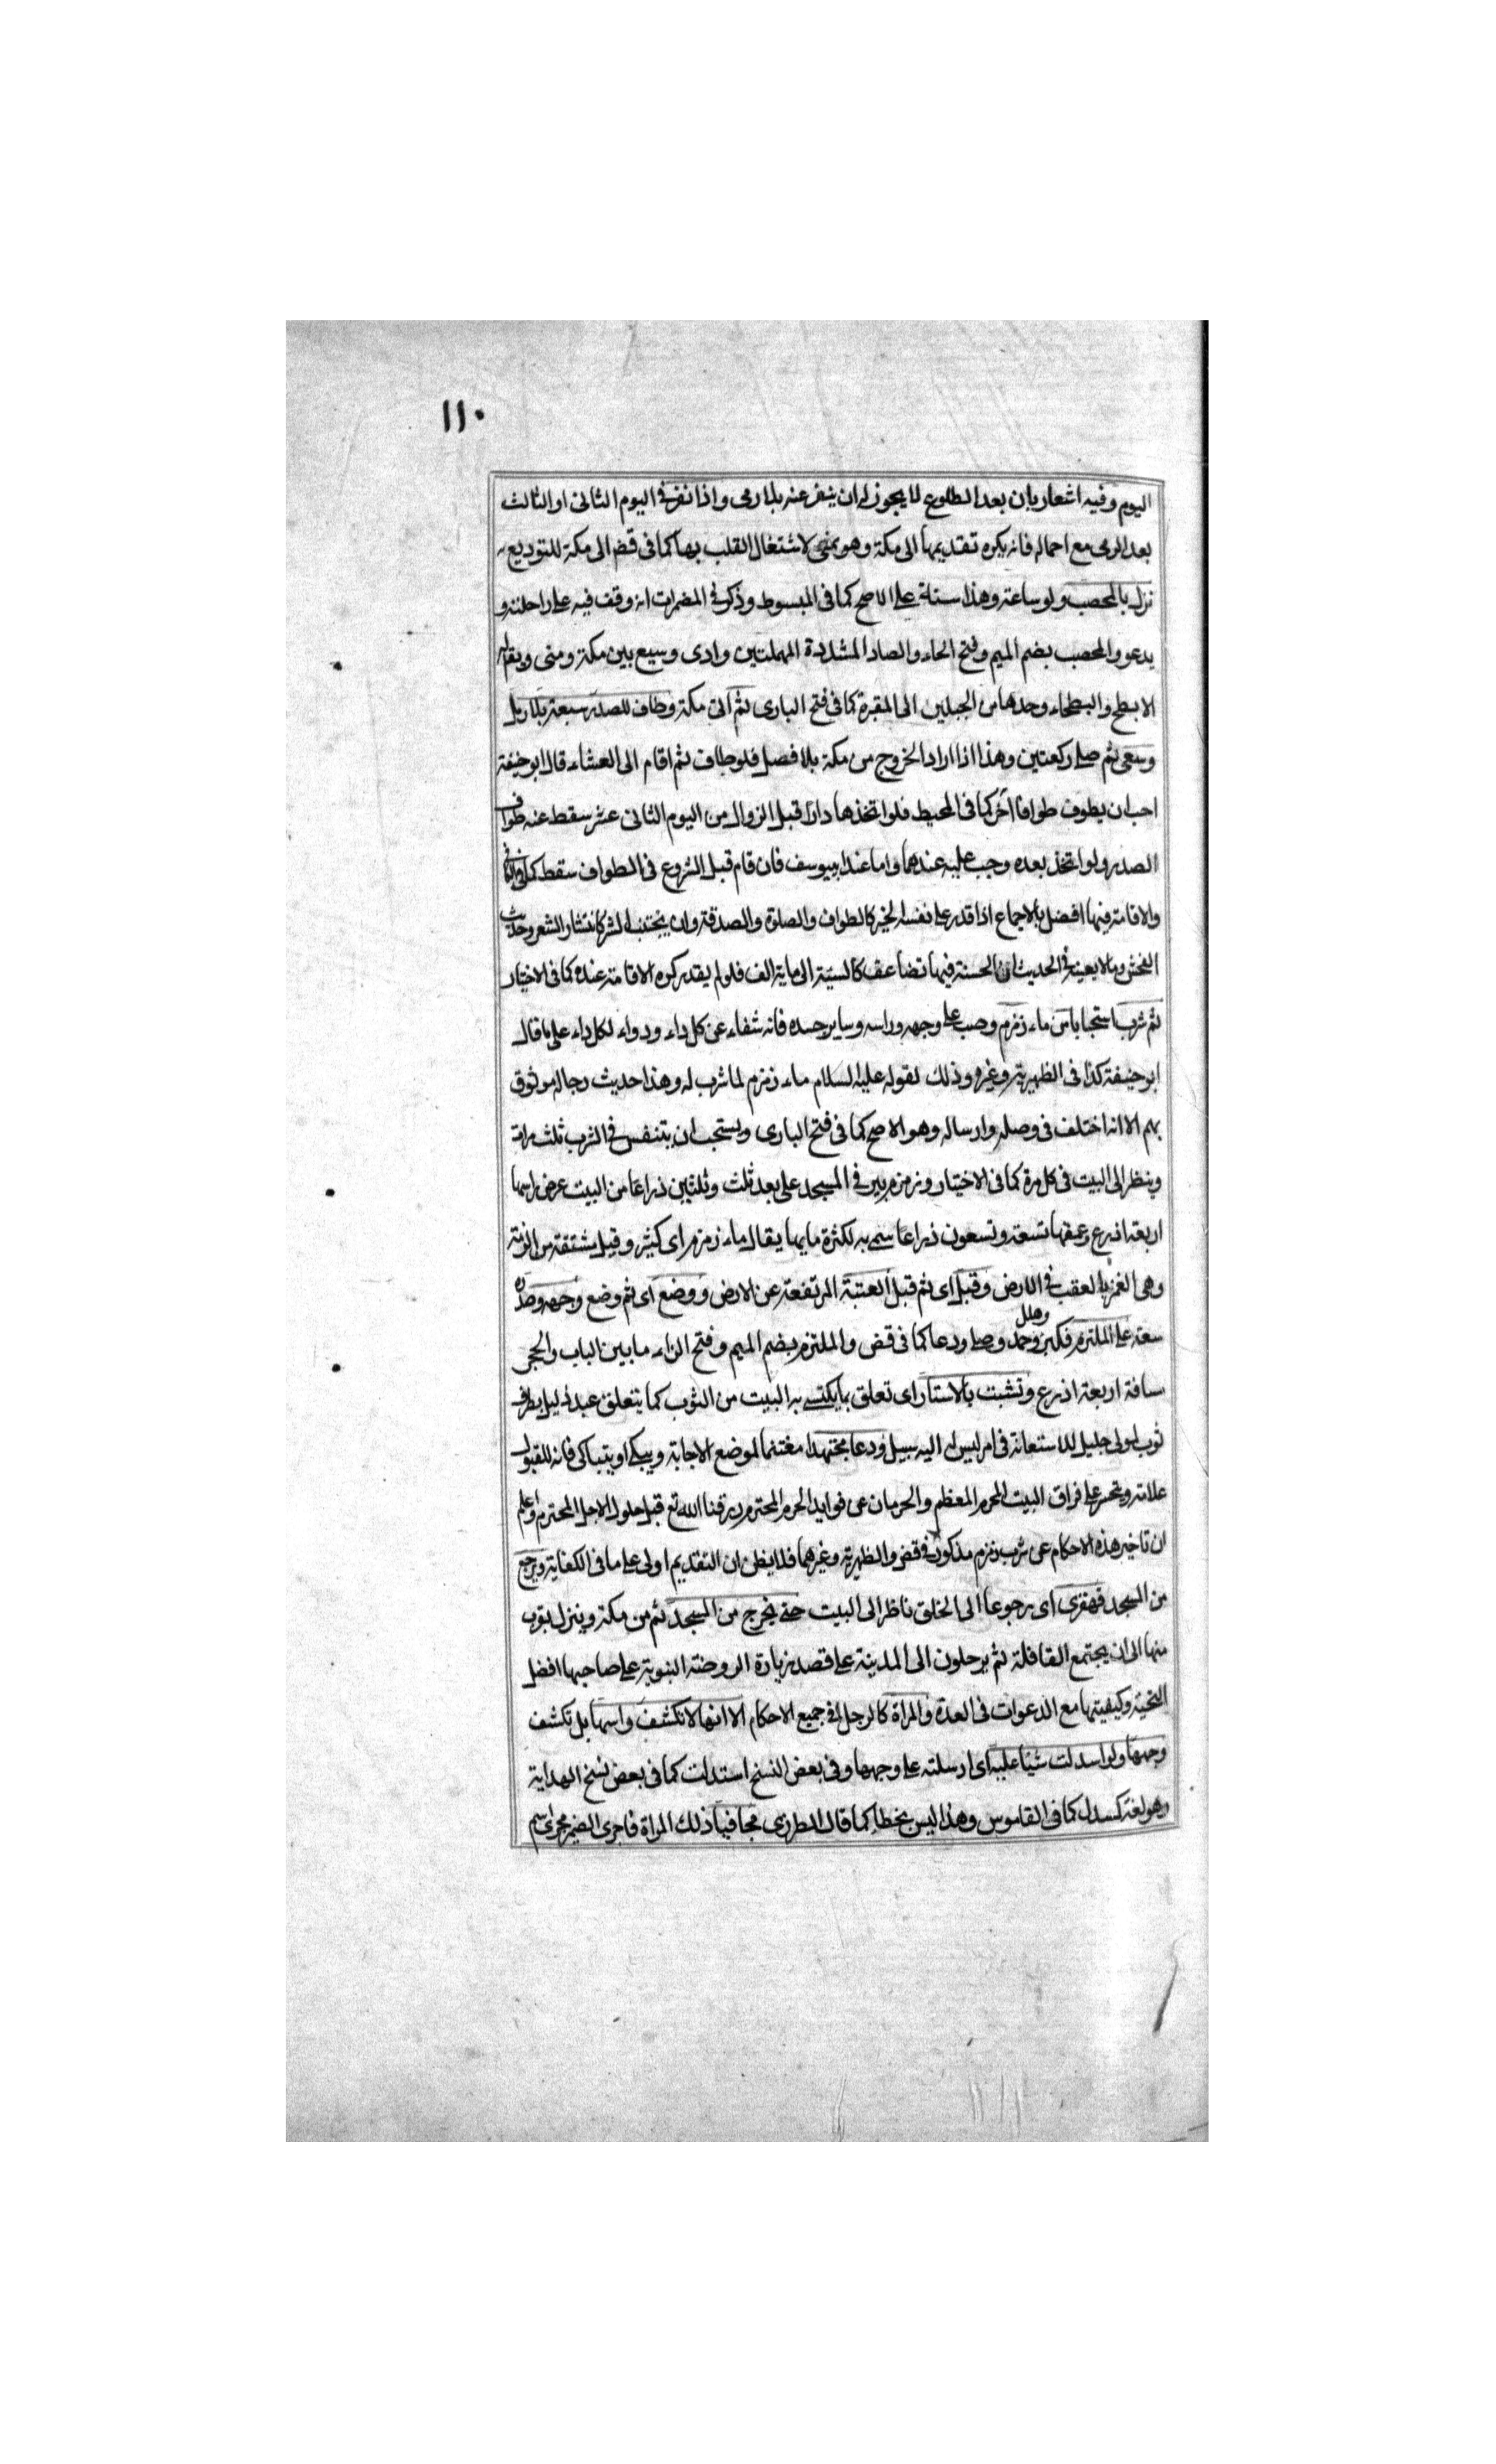 ١١٠
اليوم وفيه اشعار بان بعد الطلوع لا يجوز له ان ينفر عنه بلا رمى واذا نفر فى اليوم الثانى او الثالث
بعد الرمى مع احماله فانه يكره تقديمها الى مكة وهو بمنى لاشتغال القلب بها كما فى قض الى مكة للتوديع
نزل بالمحصب ولو ساعة وهذا سنة على الاصح كما فى المبسوط وذكر فى المضمرات انه وقف فيه على راحلته و
يدعو والمحصب بضم الميم وفتح الحاء والصاد المشددة المهملتين وادى وسيع بين مكة ومنى ويقال له
الابطح والبطحاء وحدها من الجبلين الى المقبرة كما فى فتح البارى ثم اتى مكة وطاف للصدر سبعة بلا رمل
وسعى ثم صلى ركعتين وهذا اذا اراد الخروج من مكة بلا فصل فلو طاف ثم اقام الى العشاء قال ابو حنيفة
احب ان يطوف طوافا آخر كما فى المحيط فلو اتخذها دارا قبل الزوال من اليوم الثانى عشر سقط عنه طواف
الصدر ولو اتخذ بعده وجب عليه عندهما واما عند ابى يوسف فان قام قبل الشروع فى الطواف سقط كما فى
والاقامة فيها افضل بالاجماع اذا قدر على نفسه الخير كالطواف والصلوة والصدقة وان يجتنب الشر كانتشار الشعر وحديث
الفحش وما لا يعينه فى الحديث ان الحسنة فيها تضاعف كالسيئة الى ماية الف فلو لم يقدر كره الاقامة عنده كما فى الاختيار
ثم شرب استحبابا من ماء زمزم وصب على وجهه وراسه وساير جسده فانه شفاء عن كل داء ودواء لكل داء على ما قال
ابو حنيفة كذا فى الظهيرية وغيره وذلك لقوله عليه السلام ماء زمزم لما شرب له وهذا حديث رجاله موثوق
بهم الا انه اختلف فى وصله وارساله وهو الاصح كما فى فتح البارى ويستحب ان يتنفس فى الشرب ثلث مرات
وينظر الى البيت فى كل مرة كما فى الاختيار وزمزم بير فى المسجد على بعد ثلث وثلثين ذراعا من البيت عرض راسها
اربعة اذرع وعمقها تسعة وتسعون ذراعا سمى به لكثرة مايها يقال ماء زمزم اى كثير وقيل مشتقة من الزمة
وهى الغمز بالعقب فى الارض وقبل اى ثم قبل العتبة المرتفعة عن الارض ووضع اى ثم وضع وجهه وصدره
سعة على الملتزم فكبر وحمد وهلل وصلى ودعا كما فى قض والملتزم بضم الميم وفتح الزاء ما بين الباب والحجر
مسافة اربعة اذرع وتشبث بالاستار اى تعلق بما يكتسى به البيت من الثوب كما يتعلق عبد ذليل بطرف
ثوب لمولى جليل للاستعانة فى امر ليس له اليه سبيل ودعا مجتهدا مغتنما لموضع الاجابة ويبكى او يتباكى فانه للقبول
علامة ويتحسر على فراق البيت المحرم المعظم والحرمان عن فوايد الحرم المحترم رزقنا الله تع قبل حلول الاجل المحترم واعلم
ان تاخير هذه الاحكام عن شرب زمزم مذكورة فى قض والظهيرية وغيرهما فلا يظن ان التقديم اولى على ما فى الكفاية ويرجع
من المسجد قهقرى اى رجوعا الى الخلق ناظرا الى البيت حتى يخرج من المسجد ثم من مكة وينزل بقرب
منها الى ان يجتمع القافلة ثم يرحلون الى المدينة على قصد زيارة الروضة النبوية على صاحبها افضل
التحية وكيفيتها مع الدعوات فى العدة والمراة كالرجل فى جميع الاحكام الا انها لا تكشف راسها بل تكشف
وجهها ولو اسدلت شيئا عليه اى ارسلته على وجهها وفى بعض النسخ استدلت كما فى بعض نسخ الهداية
وهو لغة كسدل كما فى القاموس وهذا ليس بخطا كما قال المطرزى مجافيا ذلك المراة فاجرى الضمير مجرى اسم